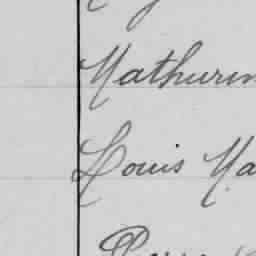 Mathurin
Louis Ma